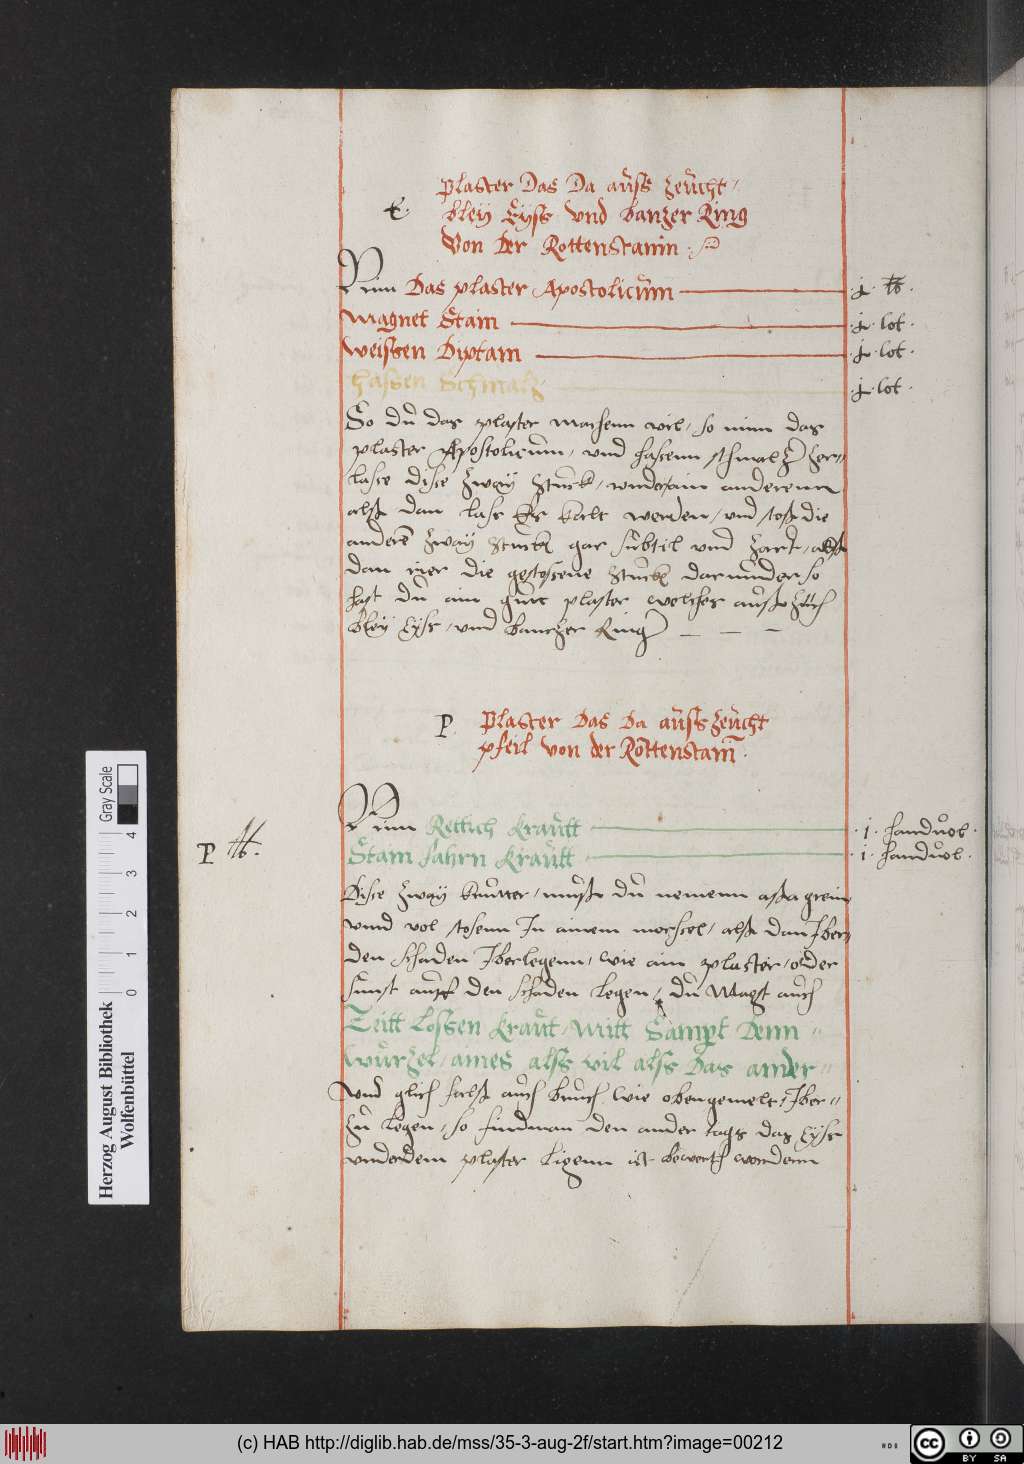 plaster Das Da aůss zeůcht
t. bleÿ Eÿss vnd banzer Ring
Von Der Rottenstanin
Nim Das plaster Apostolicům j lb
Magnet Stain j lot
Weissen Diptam j lot
hassen Schmalz j lot
So dů das plaster machenn wil, so nim das
plaster Apostolicům, vnd hasenn schmalz zer-
lasse dise zwaÿ stuckh, vnder ain anderenn
alß dan lass es kalt werden, vnd stoß die
anderē zwaÿ stuckh gar sůbtil vnd zart, alß
dan rier die gestossene stuckh darůnder so
hast dů ain gůtt plaster welches aůß züch
bleÿ Eÿss, vnd bantzer Ring
P plaster Das Da aůsszeůcht
pfeil von der Rottenstam̄
Nim Rettich kraůtt j handuol
P lb. Stain fahrn kraůtt j handuol
Dise zwaÿ kreütter, můß dů nemenn also grein
vnnd wol stosenn In ainem morsel, alß dan Iber
den schaden Iberlegenn, wie ain plaster, oder
sunst aůff den schaden legen, dů magst aůch
Zeitt lossen kraůt, mitt Sampt Denn
Würzel, aines alss vil alss das ander
Vnd glich falß aůch brůch wie obengemelt, Iber-
zů legen, so findman den ander tags das Eÿss
vnderdem plaster ligenn ist bewertt wordenn
Herzog August Bibliothek
Wolfenbüttel
0 1 2 3 4
Gray Scale
(c) HAB http://diglib.hab.de/mss/35-3-aug-2f/start.htm?image=00212
cc BY SA